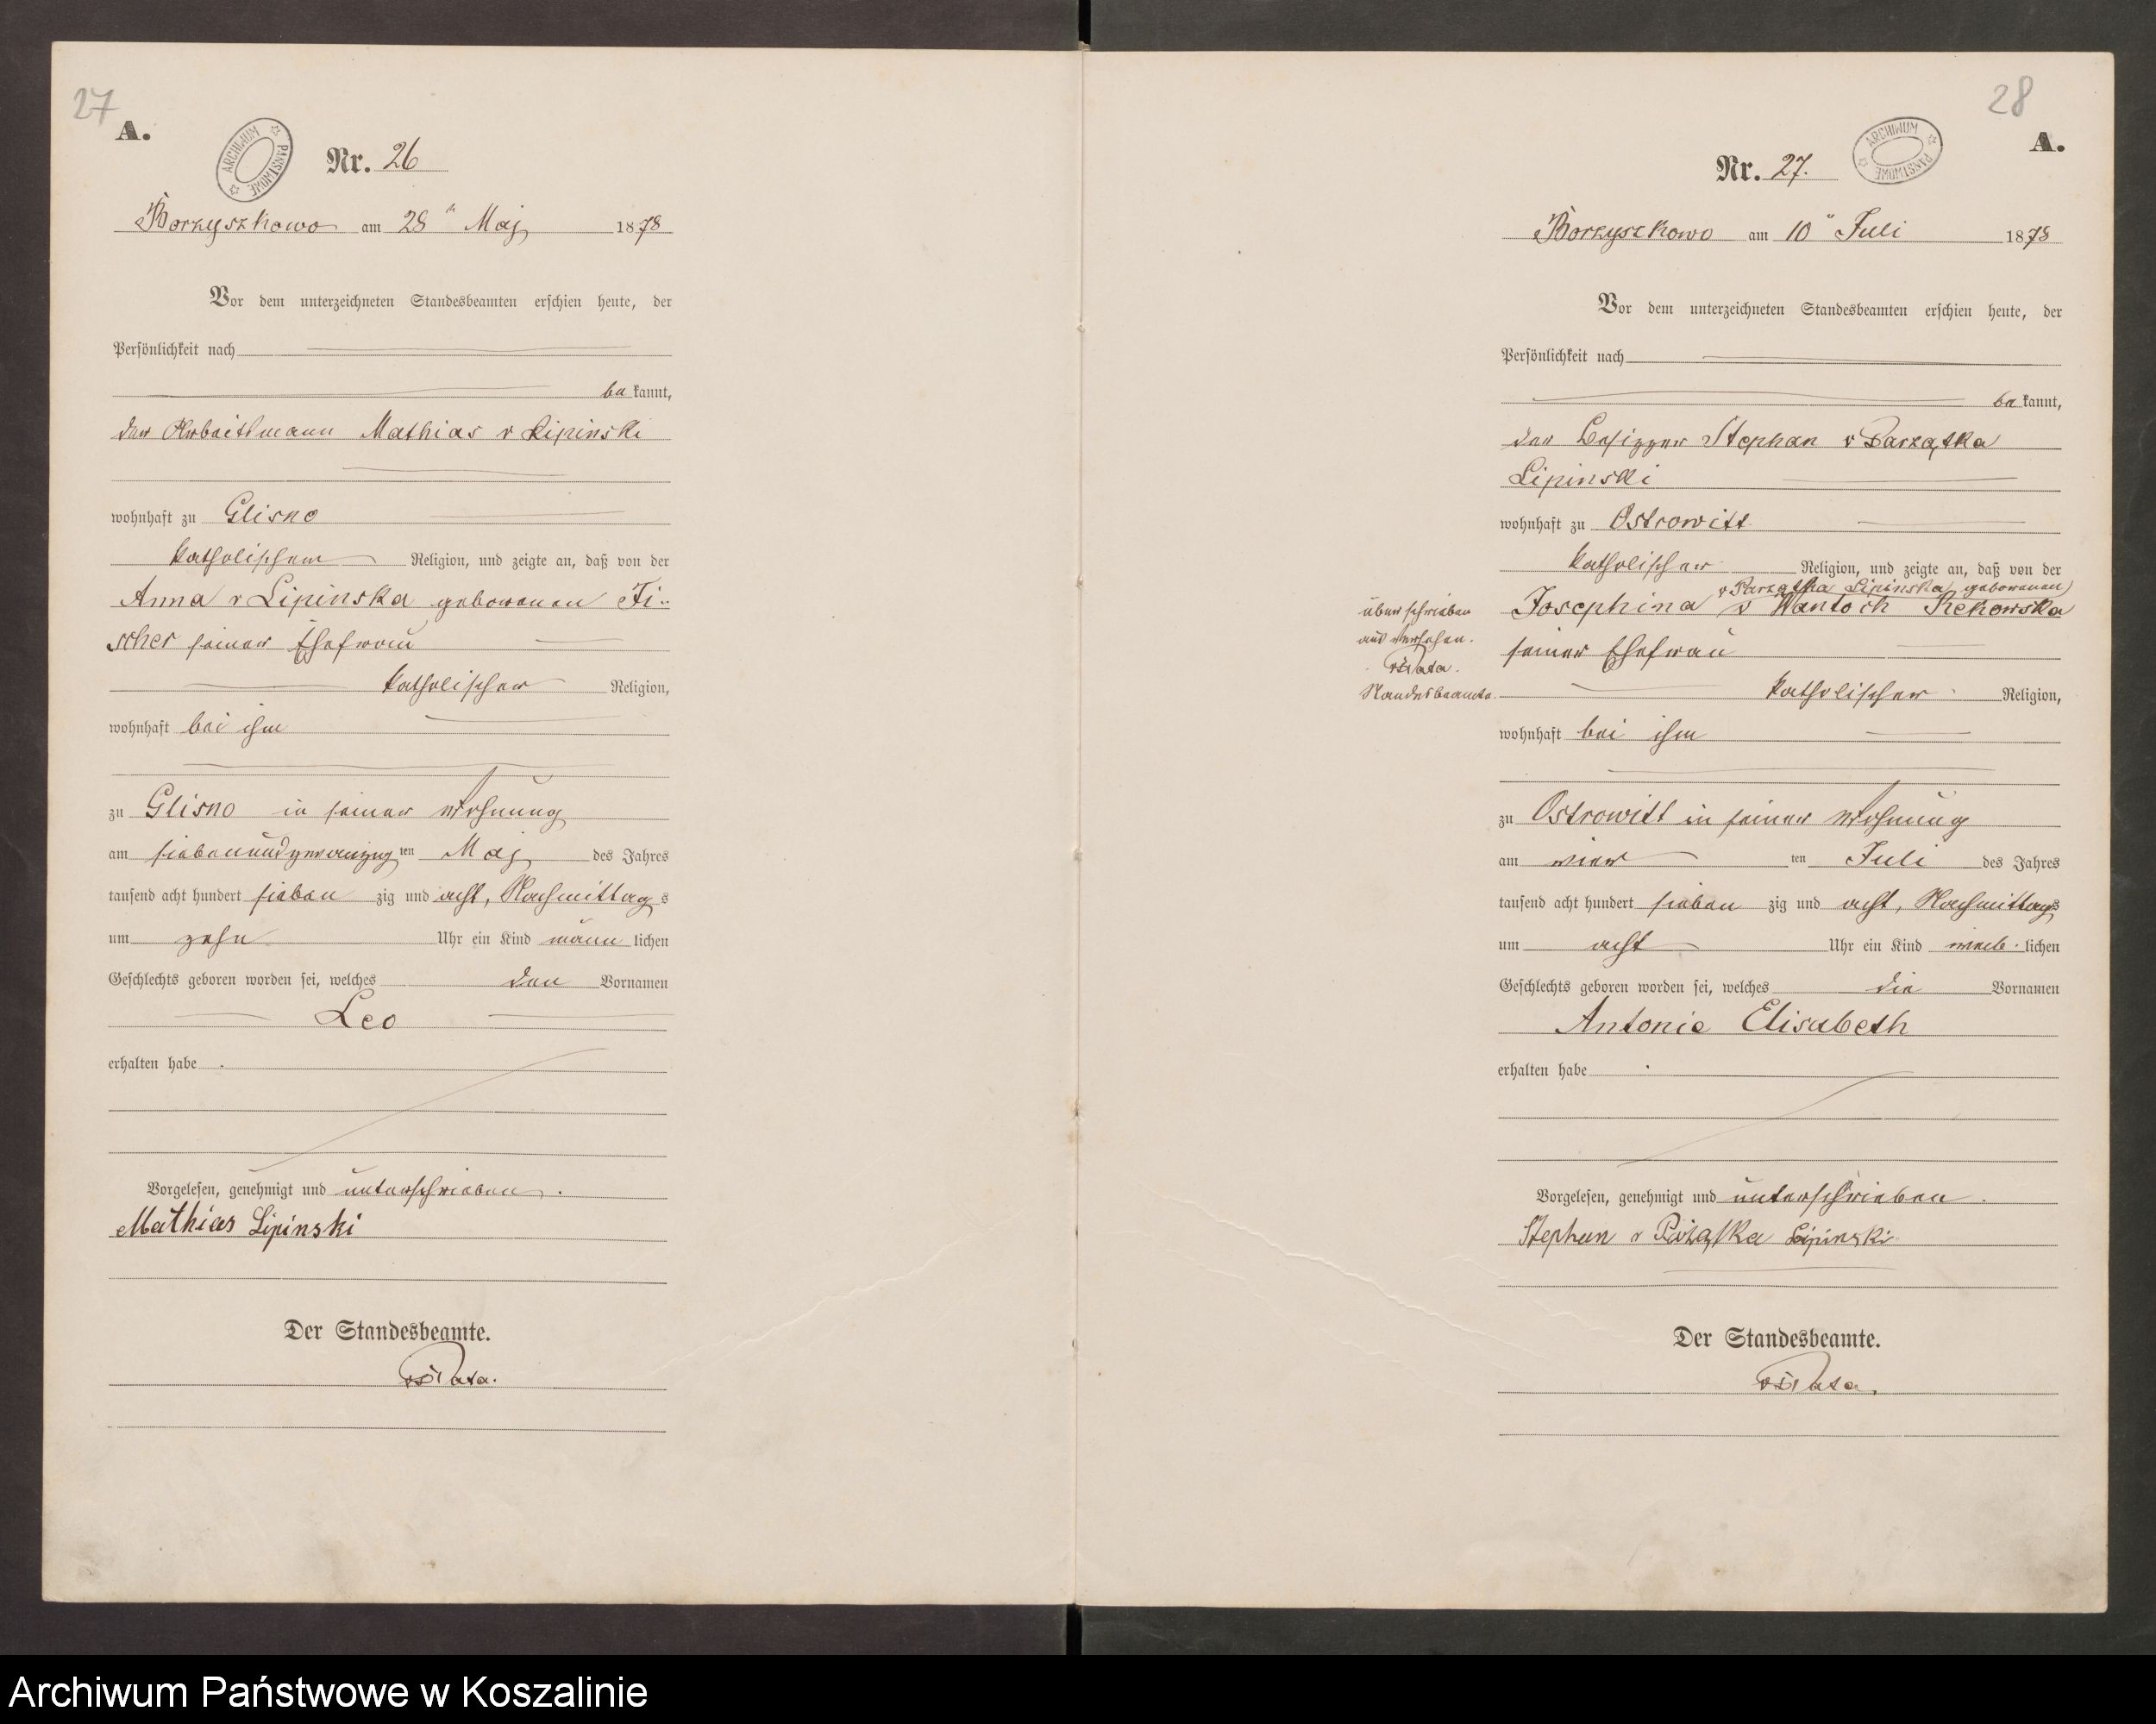 27
A.
ARCHIWUM PAŃSTWOWE
Nr. 26
Borzyszkowo am 28ten Maj 1878
Vor dem unterzeichneten Standesbeamten erschien heute, der
Persönlichkeit nach
be kannt,
der Arbeitsmann Mathias v Lipinski
wohnhaft zu Glisno
katholischem Religion, und zeigte an, daß von der
Anna v Lipinska geborenen Fi-
scher seiner Ehefrau
katholischer Religion,
wohnhaft bei ihm
zu Glisno in seiner Wohnung
am siebenundzwanzig ten Maj des Jahres
tausend acht hundert sieben zig und acht, Nachmittag s
um zehn Uhr ein Kind männ lichen
Geschlechts geboren worden sei, welches den Vornamen
Leo
erhalten habe.
Vorgelesen, genehmigt und unterschrieben.
Mathias Lipinski
Der Standesbeamte.
28
A.
ARCHIWUM PAŃSTWOWE
Nr. 27.
Borzyszkowo am 10" Juli 1878
Vor dem unterzeichneten Standesbeamten erschien heute, der
Persönlichkeit nach
be kannt,
der Besitzer Stephan v Parzątka
Lipinski
wohnhaft zu Ostrowitt
katholischer Religion, und zeigte an, daß von der
v Parzatka Lipinska geborenen
Josephina v Wantoch Rekowska
überschrieben
aus Versehen.
Standesbeamte.
seiner Ehefrau
katholischer Religion,
wohnhaft bei ihm
zu Ostrowitt in seiner Wohnung
am vier ten Juli des Jahres
tausend acht hundert sieben zig und acht, Nachmittags
um acht Uhr ein Kind weib lichen
Geschlechts geboren worden sei, welches die Vornamen
Antonie Elisabeth
erhalten habe.
Vorgelesen, genehmigt und unterschrieben.
Stephan v Lipinski
Der Standesbeamte.
Archiwum Państwowe w Koszalinie